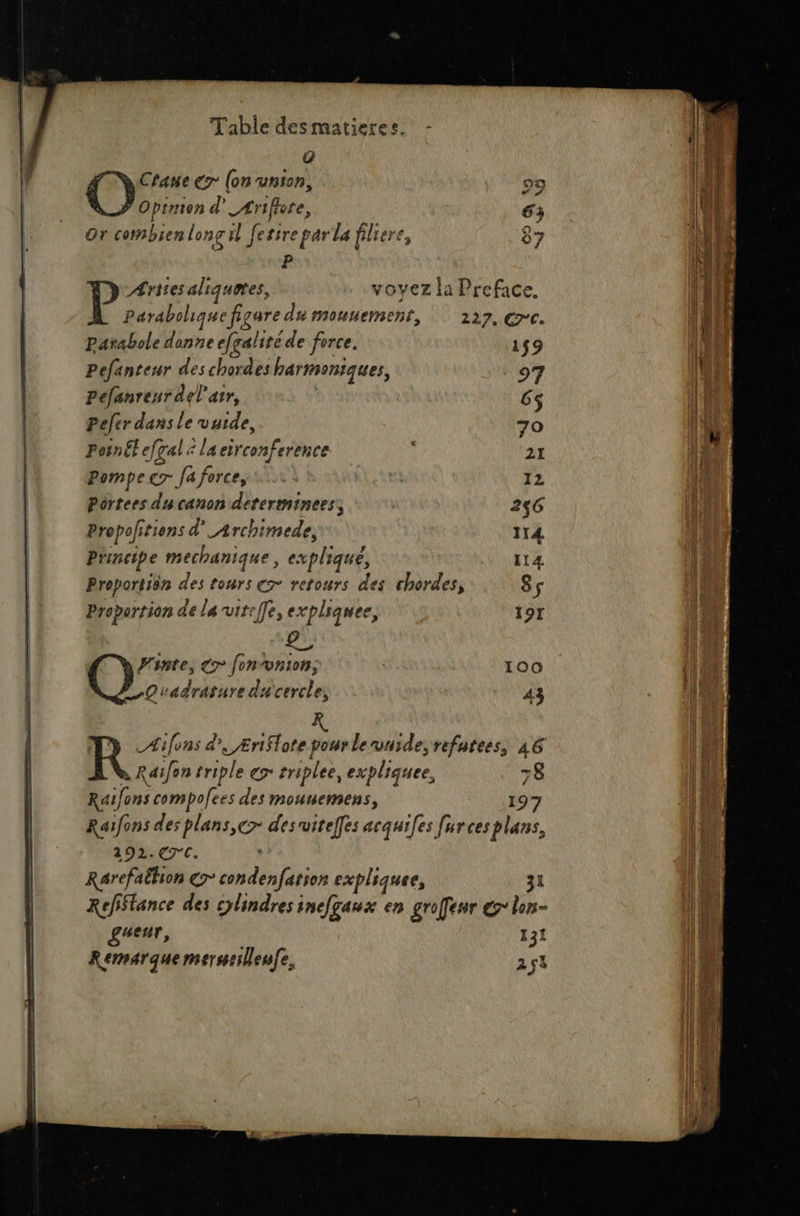 Table des matieres.
O
OCtaue & son vnion, 99
Opinion d'Aristote, 63
Or combien long il se tire par la filiere, 87
P
PArties aliquotes, voyez la Preface.
Parabolique figure du mouuement, 227. &c.
Parabole donne esgalité de force. 159
Pesanteur des chordes harmoniques, 97
Pesanteur de l'air, 65
Peser dans le vuide, 70
Poinct esgal à la circonference 21
Pompe & sa force, 12
Portees du canon determinees, 256
Propositions d'Archimede, 114
Principe mechanique, expliqué, 114
Proportion des tours & retours des chordes, 85
Proportion de la vitesse, expliquee, 191
Q
QVinte, & son vnion, 100
Quadrature du cercle, 43
R
RAisons d'Aristote pour le vuide, refutees, 46
Raison triple & triplee, expliquee, 78
Raisons composees des mouuemens, 197
Raisons des plans, & des vitesses acquises sur ces plans,
192. &c.
Rarefaction & condensation expliquee, 31
Resistance des cylindres inesgaux en grosseur & lon-
gueur, 131
Remarque merueilleuse, 251